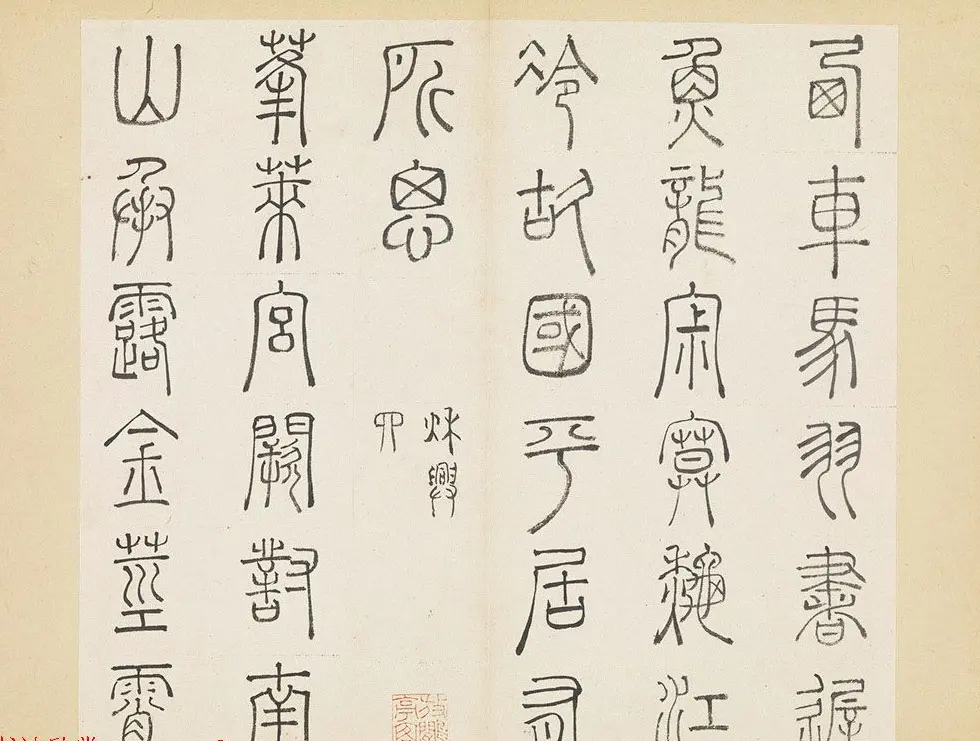 西車馬羽書遲
魚龍寂寞秋江
冷故國平居有
所思
秋興
四
蓬萊宮闕對南
山承露金莖霄